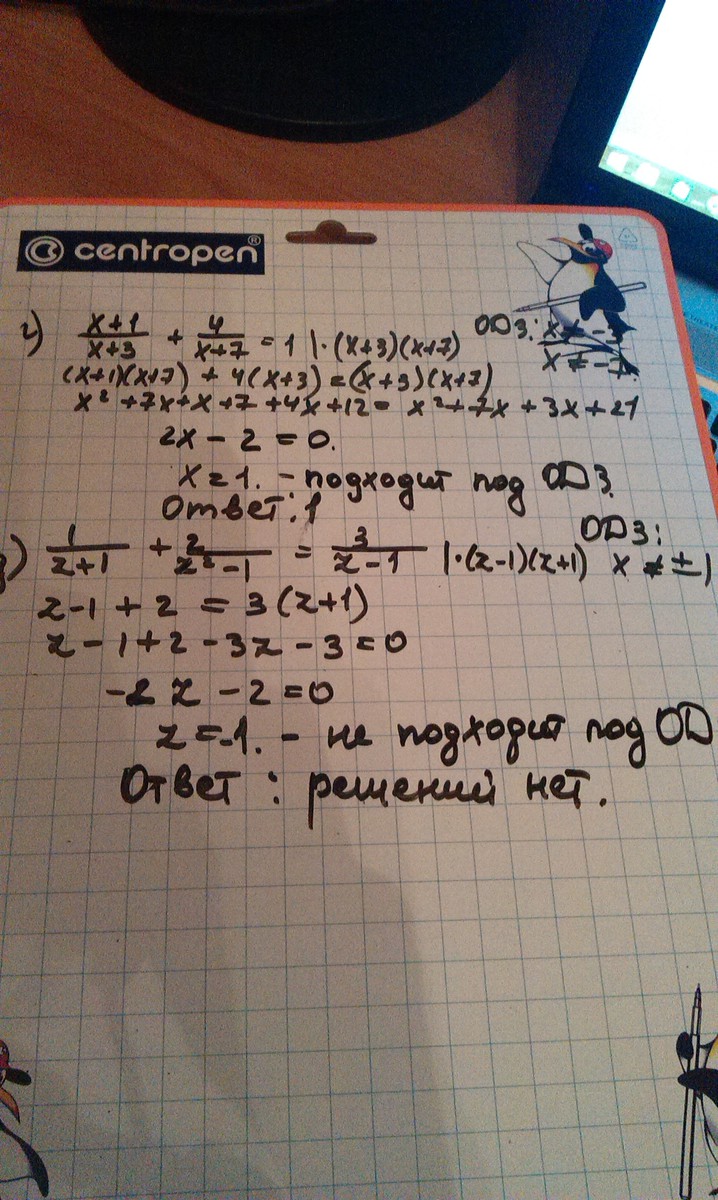 centropen®
г) x+1/x+3 + 4/x+7 = 1 |·(x+3)(x+7) ОДЗ: x ≠ -3
x ≠ -7.
(x+1)(x+7) + 4(x+3) = (x+3)(x+7)
x² + 7x + x + 7 + 4x + 12 = x² + 7x + 3x + 21
2x - 2 = 0.
x = 1. - подходит под ОДЗ.
Ответ: 1
ОДЗ:
1/z+1 + 2/z²-1 = 3/z-1 |·(z-1)(z+1) x ≠ ±1
z-1 + 2 = 3(z+1)
z - 1 + 2 - 3z - 3 = 0
-2z - 2 = 0
z = -1. - не подходит под ОД
Ответ: решений нет.